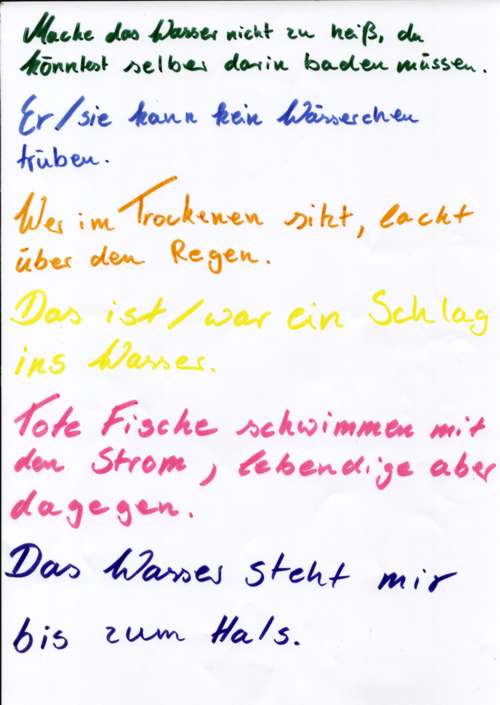 Mache das Wasser nicht zu heiß, du
könntest selber darin baden müssen.
Er/sie kann kein Wässerchen
trüben.
Wer im Trockenen sitzt, lacht
über den Regen.
Das ist/war ein Schlag
ins Wasser.
Tote Fische schwimmen mit
den Strom, lebendige aber
dagegen.
Das Wasser steht mir
bis zum Hals.